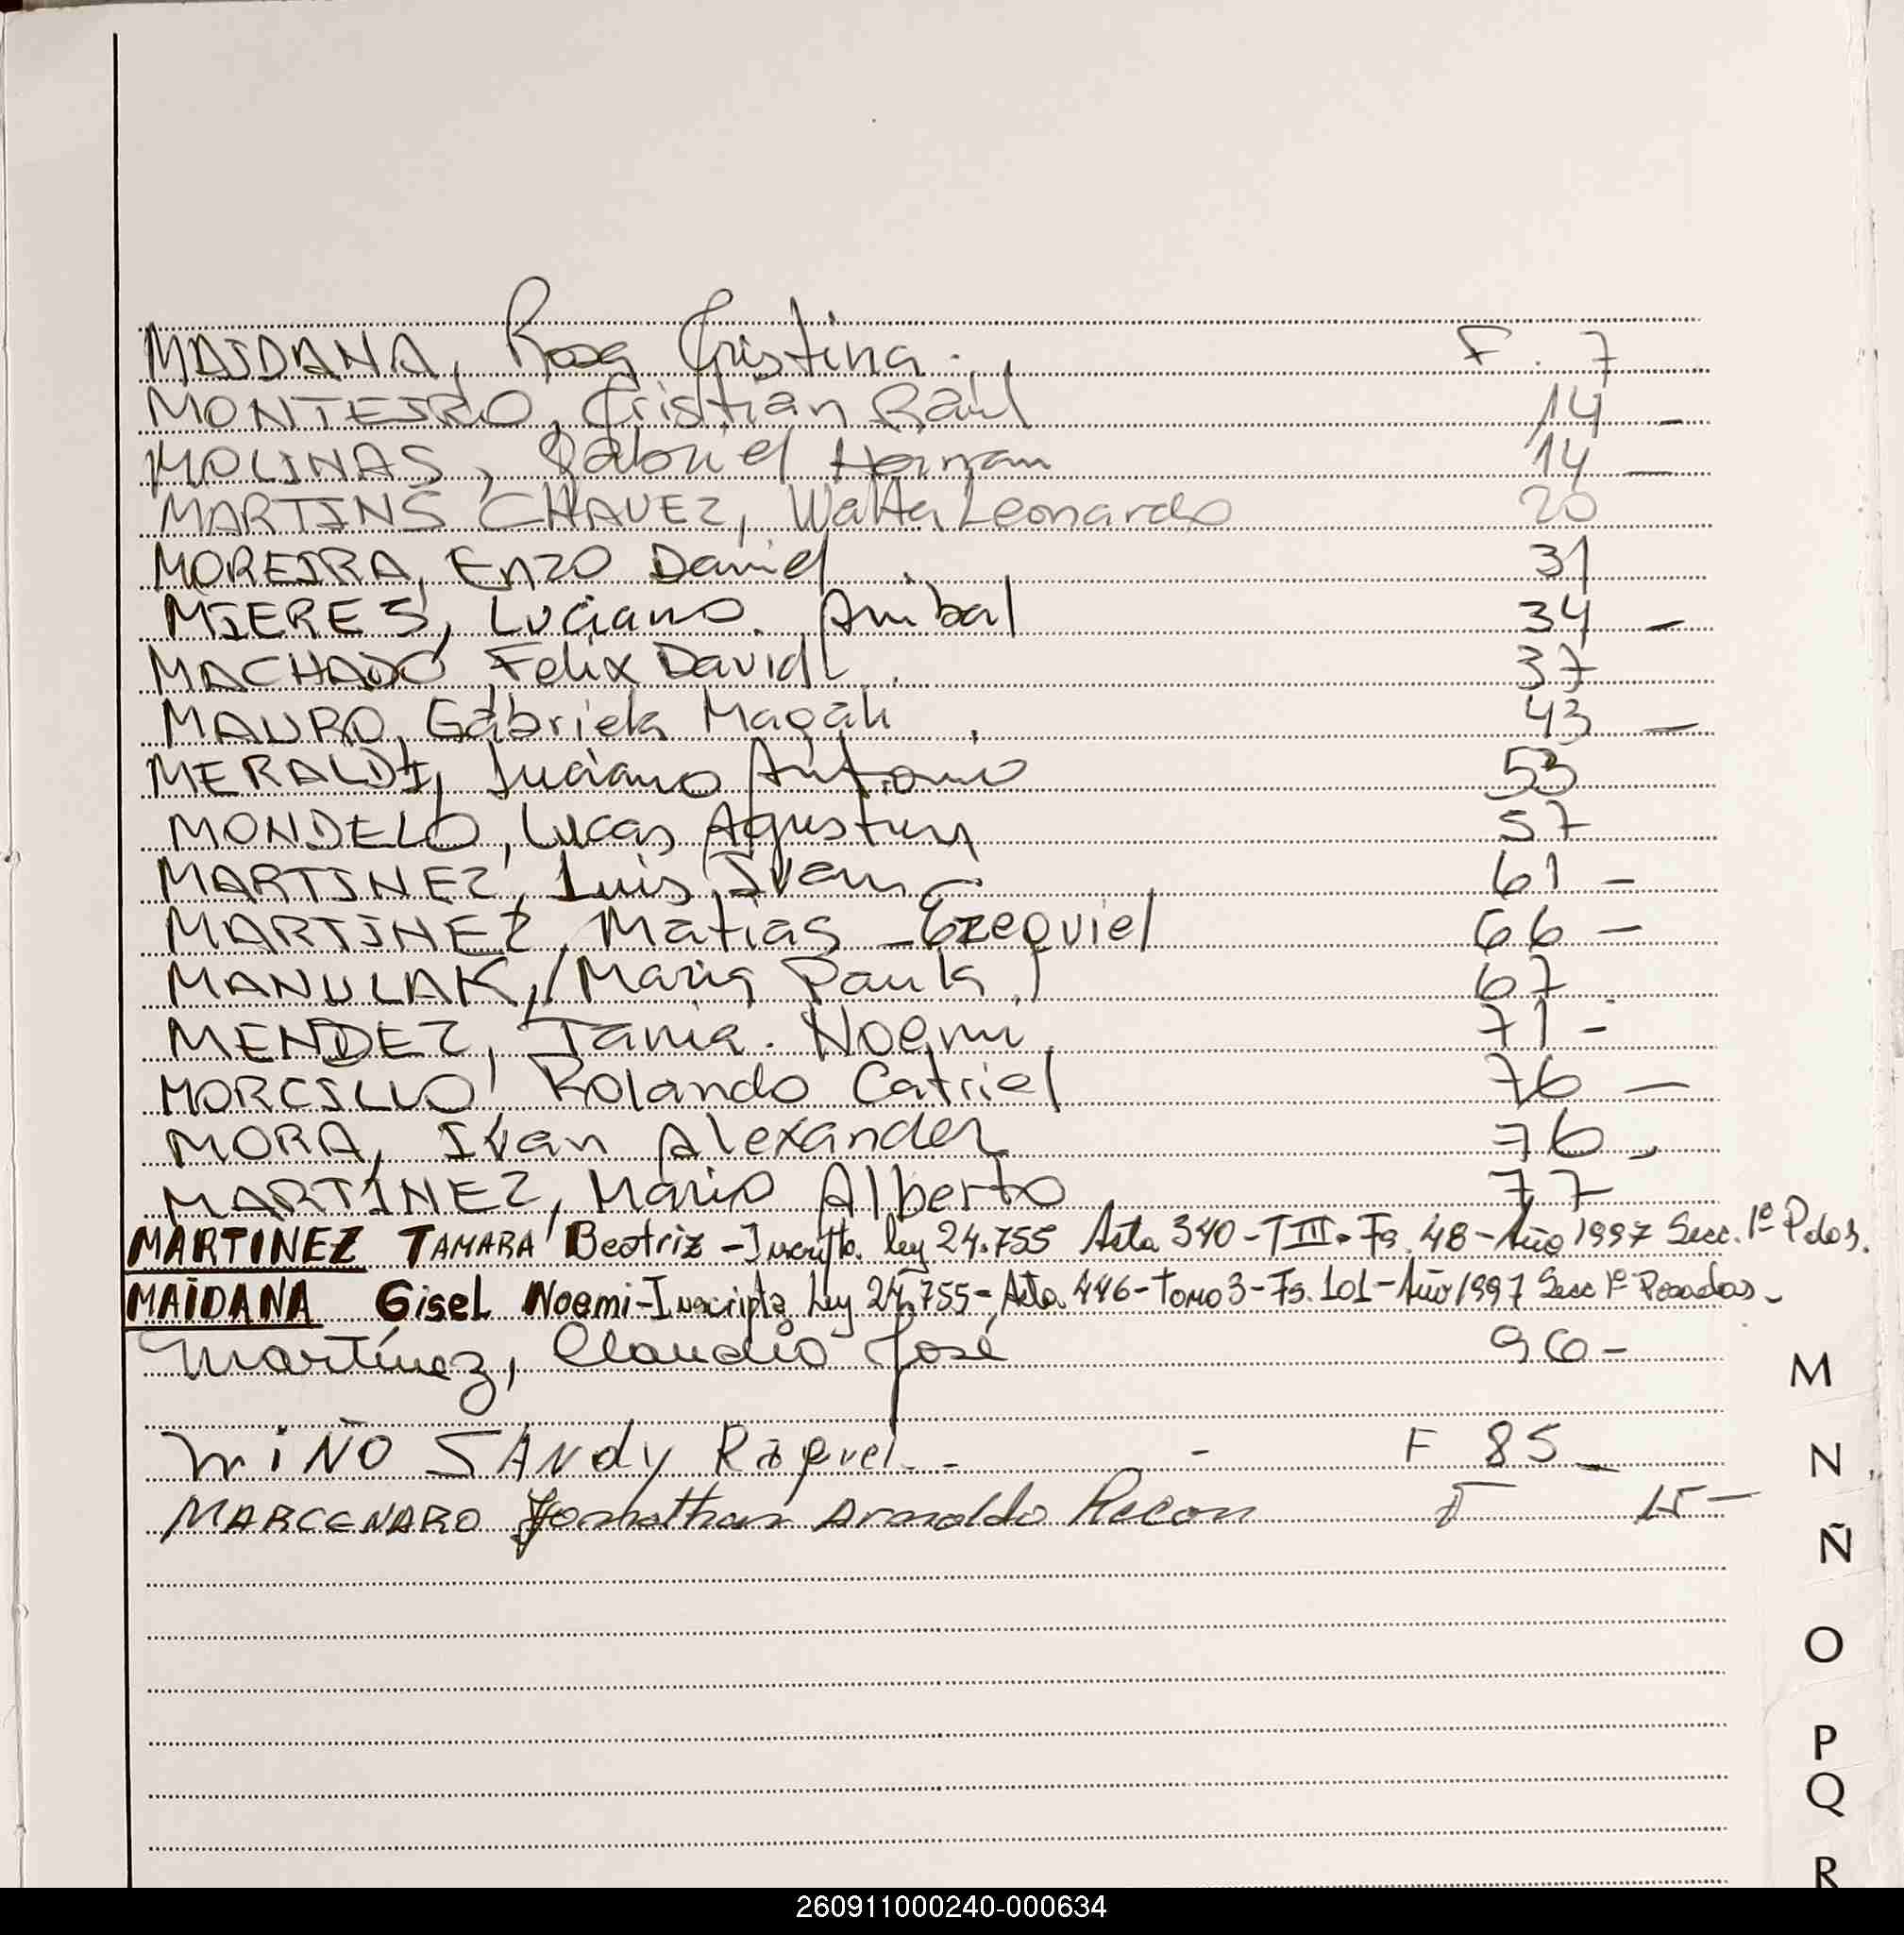 MAIDANA, Rosa Cristina. F. 7
MONTEIRO, Cristian Raúl 14 -
MOLINAS, Gabriel Hernan 14 -
MARTINS CHAVEZ, Walter Leonardo 20
MOREIRA, Enzo Daniel 31
MIERES, Luciano. Anibal 34 -
MACHADO Felix David 37
MAURO, Gabriela Magali 43 -
MERALDI, Luciano Antonio 53
MONDELO, Lucas Agustin 57
MARTINEZ, Luis Ivan - 61 -
MARTINEZ, Matias Ezequiel 66 -
MANULAK, Maria Paula 67
MENDEZ, Tania. Noemi 71 -
MORCILLO, Rolando Catriel 76 -
MORA, Ivan Alexander 76 -
MARTINEZ, Mario Alberto 77
MARTINEZ TAMARA Beatriz - Inscripta. ley 24.755 Acta 340 - T III. Fs. 48 - Año 1997 Secc. 1º Pdos.
MAIDANA Gisel Noemi - Inscripta Ley 24.755 - Acta 446 - Tomo 3 - Fs. 101 - Año 1997 Secc 1º Posadas -
Martínez, Claudio José 96 -
M
MIÑO SANdy Raquel - - F 85 -
N
MARCENARO Jonathan Arnaldo F 15 -
Ñ
O
P
Q
R
260911000240-000634